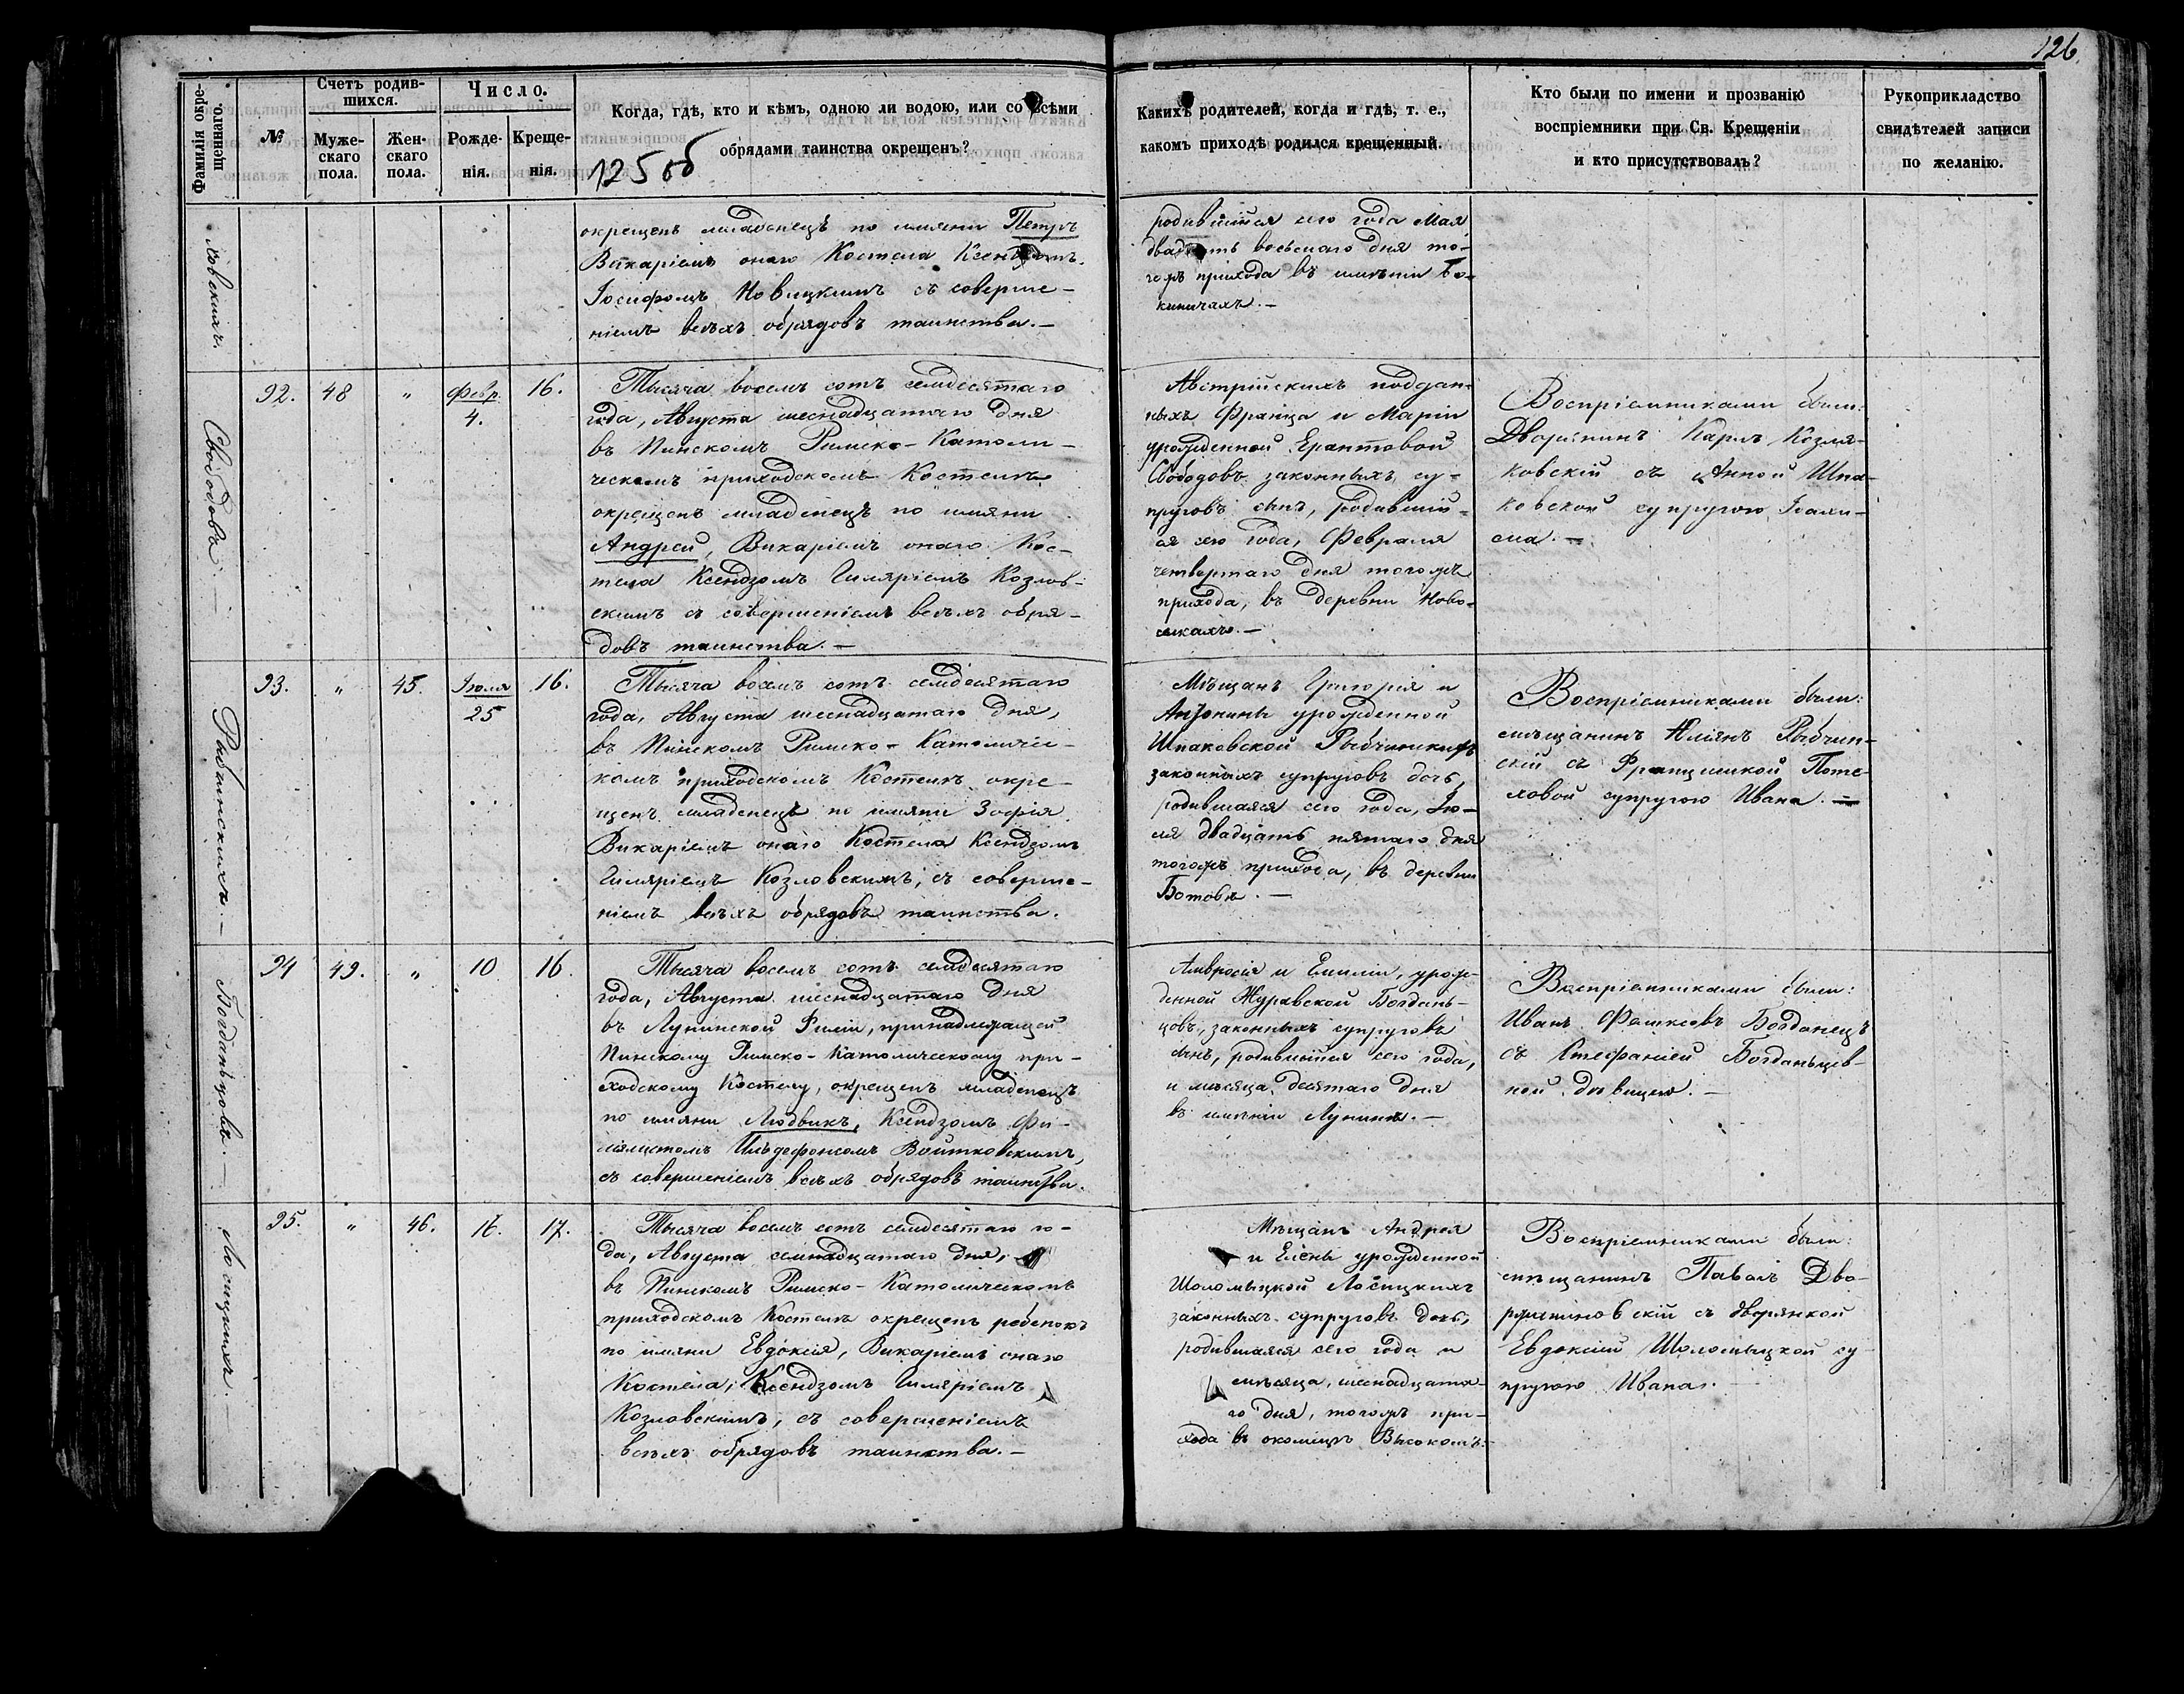 126.
Фамилія окре-
щеннаго.
№
Счетъ родив-
шихся.
Муже-
скаго
пола.
Жен-
скаго
пола.
Число.
Рожде-
нія.
Креще-
нія.
Когда, гдѣ, кто и кѣмъ, одною ли водою, или со всѣми
обрядами таинства окрещенъ?
125 об
Какихъ родителей, когда и гдѣ, т. е.,
какомъ приходѣ родился крещенный.
Кто были по имени и прозванію
воспріемники при Св. Крещеніи
и кто присутствовалъ?
Рукоприкладство
свидѣтелей записи
по желанію.
окрещенъ младенецъ по имяни Петръ
Викаріемъ онаго Костела Ксендзомъ
Іосифомъ Новицкимъ съ соверше-
ніемъ всѣхъ обрядовъ таинства.—
родившійся сего года Мая
двадцать восьмаго дня то-
гожъ прихода въ имѣніи
Свободовъ.—
92.
48
"
Февр.
4.
16.
Тысяча восемъ сотъ семдесятаго
года, Августа шеснадцатаго дня
въ Пинскомъ Римско-Католи-
ческомъ приходскомъ Костелѣ
окрещенъ младенецъ по имяни
Андрей, Викаріемъ онаго Кос-
тела Ксендзомъ Гиляріемъ Козлов-
скимъ съ совершеніемъ всѣхъ обря-
довъ таинства.—
Австрійскихъ поддан-
ныхъ Франца и Маріи
урожденной
Свободовъ законныхъ су-
пруговъ сынъ, родившій-
ся сего года, Февраля
четвертаго дня тогожъ
прихода, въ деревни Ново-
селкахъ.—
Воспріемниками были:
Дворянинъ Карлъ Козля-
ковскій съ Анной Шпа-
ковской супругою Іоахи-
ма.—
93.
"
45.
Іюля
25
16.
Тысяча восемъ сотъ семдесятаго
года, Августа шеснадцатаго дня,
въ Пинскомъ Римско-Католичес-
комъ приходскомъ Костелѣ окре-
щенъ младенецъ по имяни Зофія
Викаріемъ онаго Костела Ксендзомъ
Гиляріемъ Козловскимъ, съ соверше-
ніемъ всѣхъ обрядовъ таинства.
Мѣщанъ Григорія и
Антонины урожденной
Шпаковской
законныхъ супруговъ дочь,
родившаяся сего года, Ію-
ля двадцать пятаго дня
тогожъ прихода, въ деревни
Ботовѣ.—
Воспріемниками были:
мѣщанинъ
скій съ Францишкой
супругою Ивана.—
Богданьцовъ.
94
49.
"
10
16.
Тысяча восемъ сотъ семдесятаго
года, Августа шеснадцатаго дня
въ Лунинской Филіи, принадлежащей
Пинскому Римско-Католическому при-
ходскому Костелу, окрещенъ младенецъ
по имяни Людвикъ, Ксендзомъ Фи-
ліалистомъ Ильдефонсомъ Войтковскимъ,
съ совершеніемъ всѣхъ обрядовъ таинства.
Амвросія и Емиліи, урож-
денной Журавской Богдань-
цовъ, законныхъ супруговъ
сынъ, родившійся сего года,
и мѣсяца десятаго дня
въ имѣніи Лунинѣ.—
Воспріемниками были:
Иванъ Богданецъ
съ Стефаніей Богданьцев-
ной дѣвицею.—
Лосицкихъ.
95.
"
46.
16.
17.
Тысяча восемъ сотъ семдесятаго го-
да, Августа семнадцатаго дня,
въ Пинскомъ Римско-Католическомъ
приходскомъ Костелѣ окрещенъ ребенокъ
по имяни Евдокія, Викаріемъ онаго
Костела, Ксендзомъ Гиляріемъ
Козловскимъ, съ совершеніемъ
всѣхъ обрядовъ таинства.—
Мѣщанъ Андрея
и Елены урожденной
Шоломыцкой Лосицкихъ
законныхъ супруговъ дочь,
родившаяся сего года и
мѣсяца, шеснадцата-
го дня, тогожъ при-
хода въ околицѣ Высокомъ.
Воспріемниками были:
мѣщанинъ Павалъ
съ дворянкой
Евдокіей Шоломыцкой су
пругою Ивана.